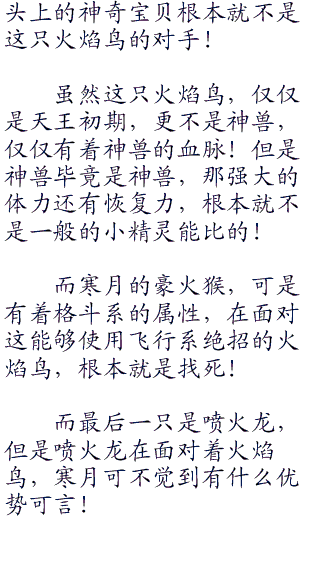 头上的神奇宝贝根本就不是
这只火焰鸟的对手！
虽然这只火焰鸟，仅仅
是天王初期，更不是神兽，
仅仅有着神兽的血脉！但是
神兽毕竟是神兽，那强大的
体力还有恢复力，根本就不
是一般的小精灵能比的！
而寒月的豪火猴，可是
有着格斗系的属性，在面对
这能够使用飞行系绝招的火
焰鸟，根本就是找死！
而最后一只是喷火龙，
但是喷火龙在面对着火焰
鸟，寒月可不觉到有什么优
势可言！